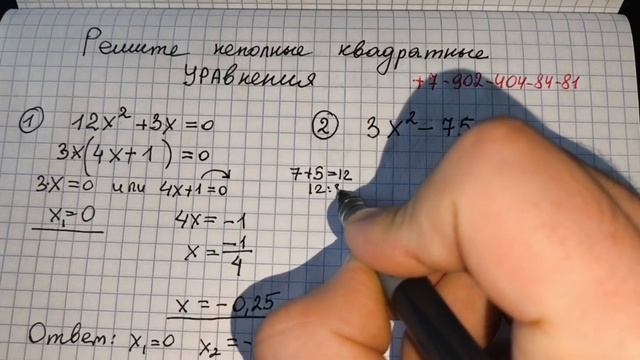 Решите неполные квадратные
уравнения
+7-902-404-84-81
① 12x² + 3x = 0
3x(4x+1) = 0
3x=0 или 4x+1=0
x₁=0
4x = -1
x = -1/4
x = -0,25
Ответ: x₁=0 x₂ = -
② 3x² - 75
7+5=12
12: